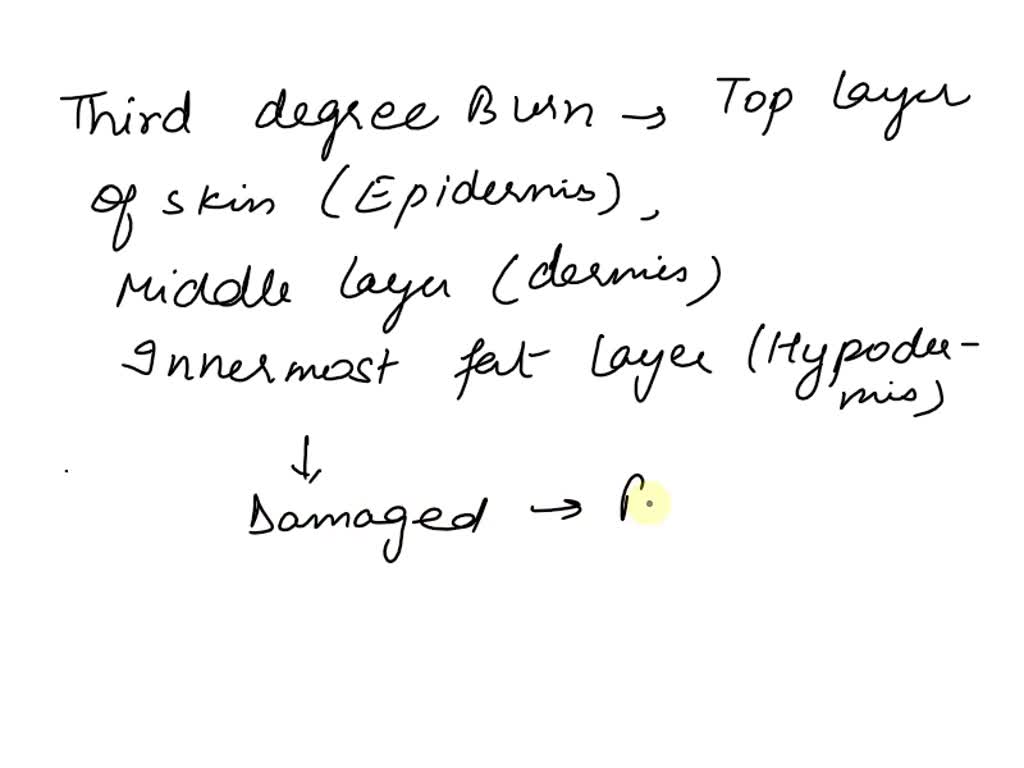 Third degree Burn → Top layer
of skin (Epidermis),
Middle layer (dermis)
Innermost fat layer (Hypoder-
mis)
↓
Damaged →